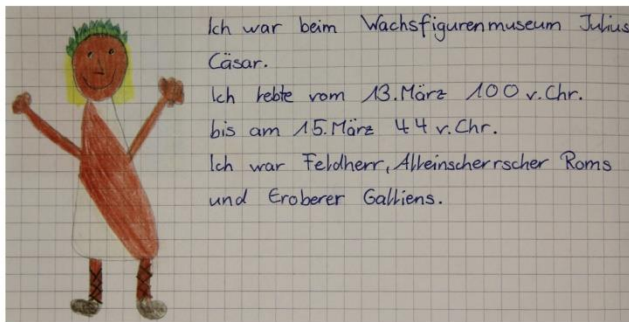 Ich war beim Wachsfigurenmuseum Julius
Cäsar.
Ich lebte vom 13.März 100 v.Chr.
bis am 15.März 44 v.Chr.
Ich war Feldherr, Alleinscherrscher Roms
und Eroberer Galliens.